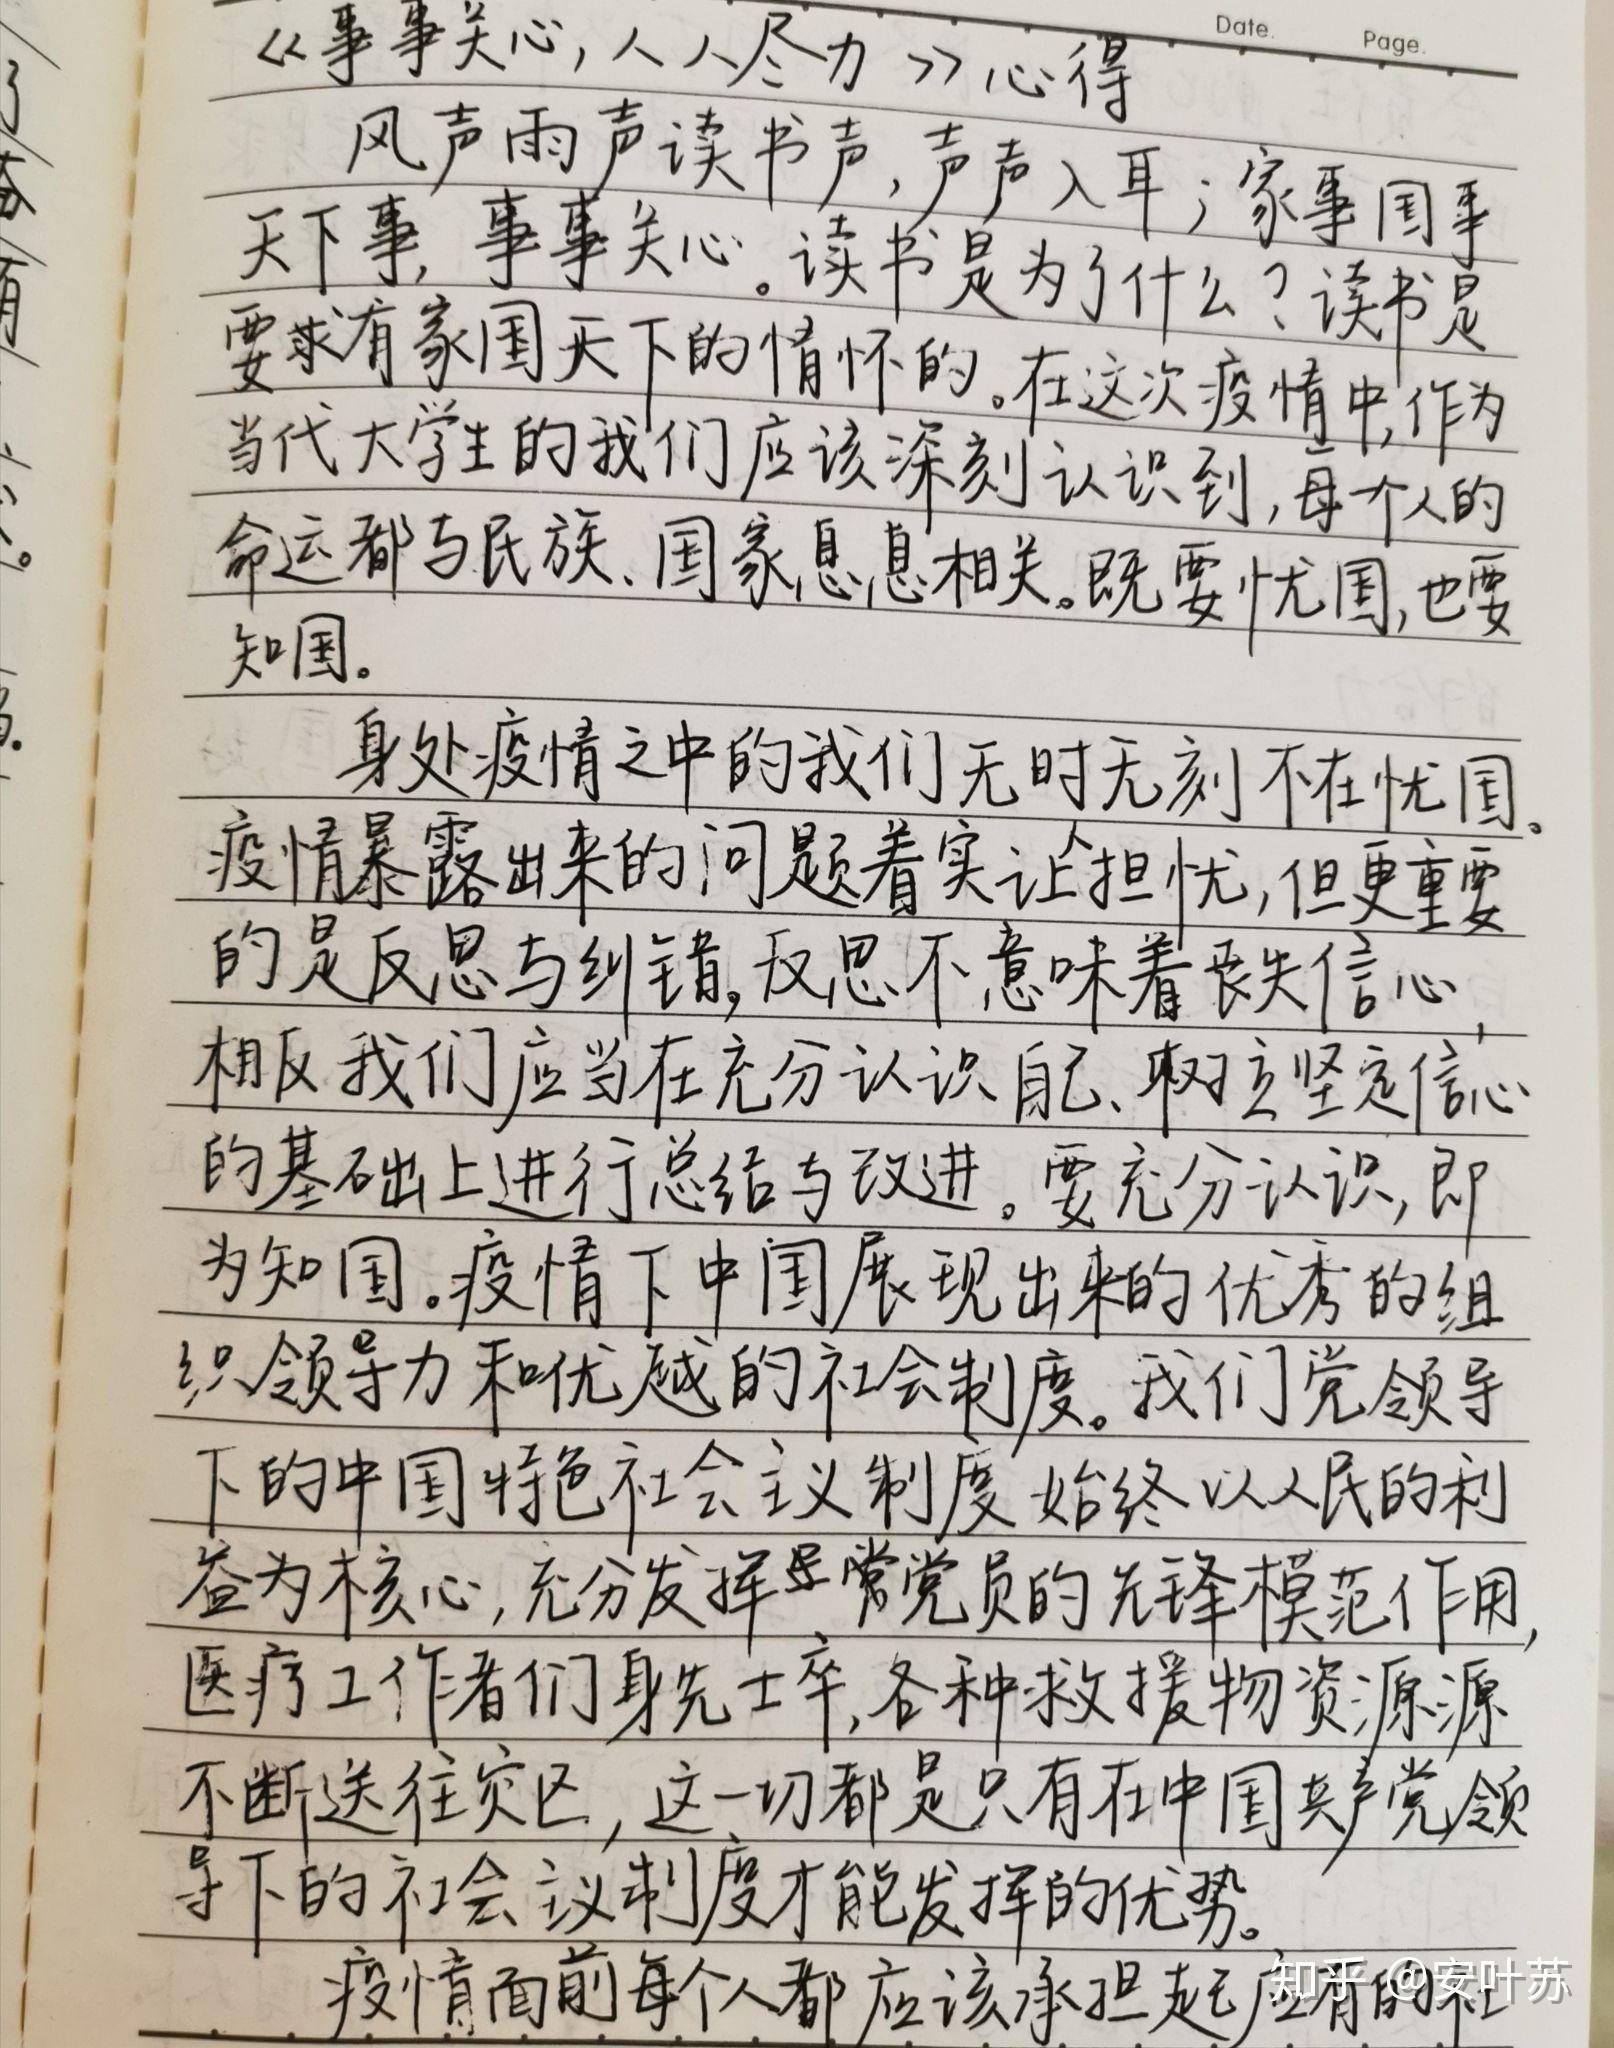 Date.
Page.
《事事关心,人人尽力》心得
风声雨声读书声,声声入耳;家事国事
天下事,事事关心。读书是为了什么?读书是
要求有家国天下的情怀的。在这次疫情中,作为
当代大学生的我们应该深刻认识到,每个人的
命运都与民族、国家息息相关。既要忧国,也要
知国。
身处疫情之中的我们无时无刻不在忧国。
疫情暴露出来的问题着实让人担忧,但更重要
的是反思与纠错,反思不意味着丧失信心,
相反我们应当在充分认识自己、树立坚定信心
的基础上进行总结与改进。要充分认识,即
为知国。疫情下中国展现出来的优秀的组
织领导力和优越的社会制度。我们党领导
下的中国特色社会主义制度始终以人民的利
益为核心,充分发挥党员的先锋模范作用,
医疗工作者们身先士卒,各种救援物资源源
不断送往灾区,这一切都是只有在中国共产党领
导下的社会主义制度才能发挥的优势。
疫情面前每个人都应该承担起应有的社
知乎 @安叶苏